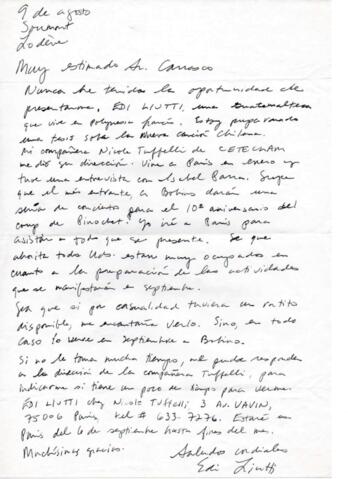 9 de agosto
Soumont
Lodève
Muy estimado Sr. Carrasco
Nunca he tenido la oportunidad de
presentarme, EDI LIUTTI, una guatemalteca
que vive en Polynesia francés. Estoy preparando
una tesis sobre la Nueva Canción Chilena.
Mi compañera Nicole Tuffelli de CETECHAM
me dió su dirección. Vine a Paris en enero y
tuve una entrevista con Isabel Parra. Supe
que el mes entrante, a Bobino darán una
serie de concierto para el 10º aniversario del
coup de Pinochet. Yo iré a Paris para
asistir a todo que se presente. Se que
ahorita todo Uds. estan muy ocupados en
cuanto a la preparación de las actividades
que se manifestarán en septiembre.
Sea que si por casualidad tuviera un ratito
disponible, me encantaría verlo. Sino, en todo
caso lo veré en septiembre a Bobino.
Si no le toma mucho tiempo, me puede responder
a la dirección de la compañera Tuffelli, para
indicarme si tiene un poco de tiempo para verme.
EDI LIUTTI chez Nicole Tuffelli, 3 AV. VAVIN,
75006 Paris, tel # 633-7276. Estaré en
Paris del 6 de septiembre hasta fines del mes.
Muchísimas gracias.
Saludos cordiales
Edi Liutti